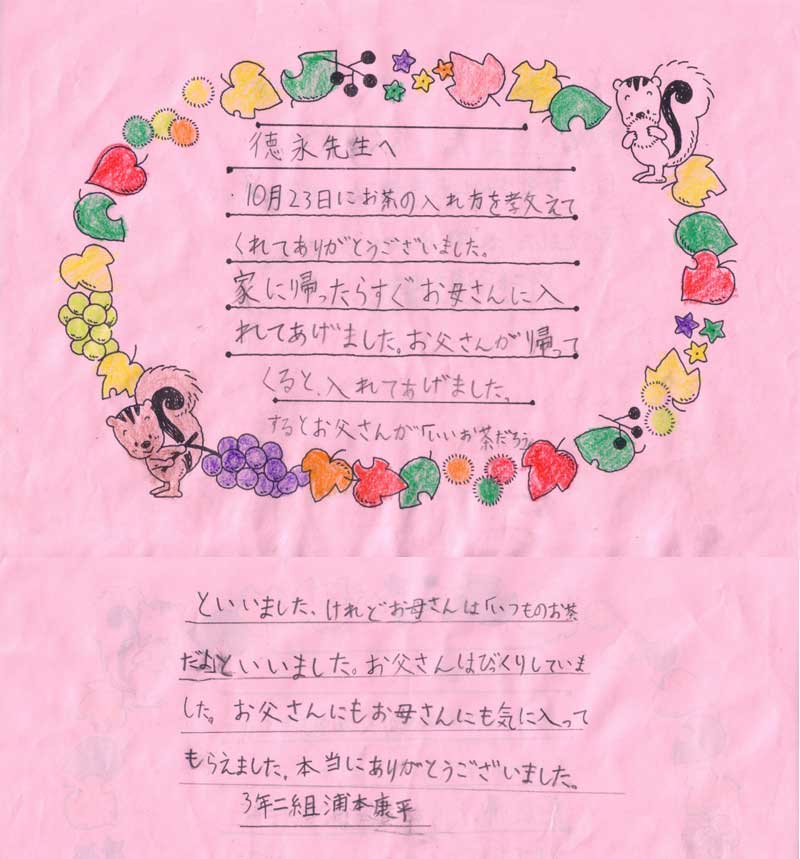 徳永先生へ
・10月23日にお茶の入れ方を教えて
くれてありがとうございました。
家に帰ったらすぐお母さんに入
れてあげました。お父さんが帰って
くると、入れてあげました。
するとお父さんが「いいお茶だろう」
といいました、けれどお母さんは「いつものお茶
だよ」といいました。お父さんはびっくりしていま
した。お父さんにもお母さんにも気に入って
もらえました。本当にありがとうございました。
3年二組浦本康平